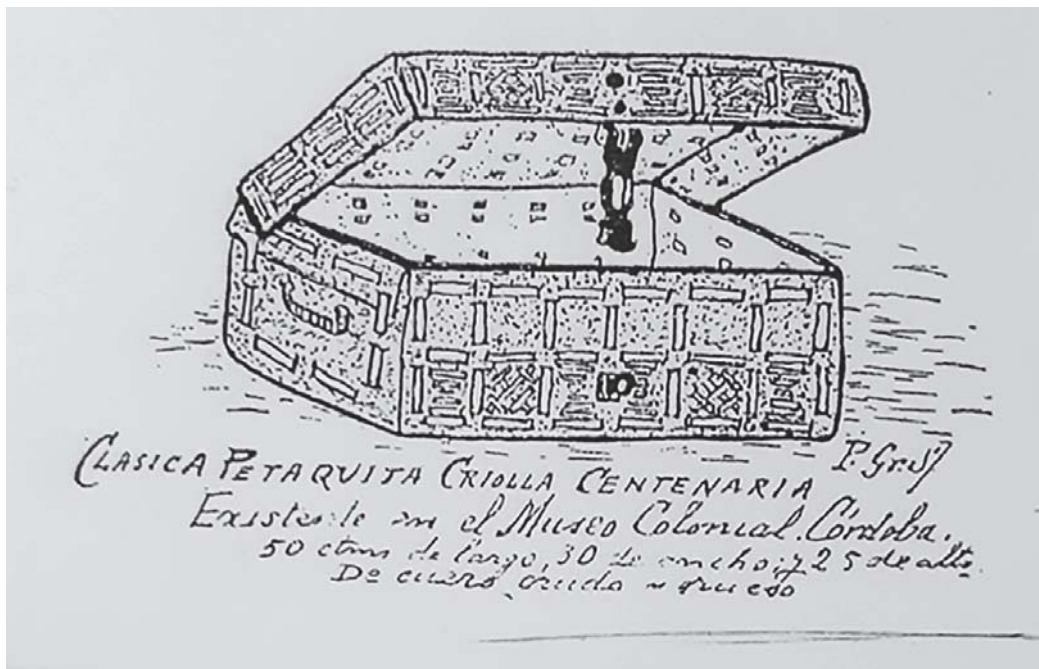 CLASICA PETAQUITA CRIOLLA CENTENARIA
Existente en el Museo Colonial. Córdoba.
50 ctms de largo, 30 de ancho, y 25 de alto.
De cuero crudo y grueso